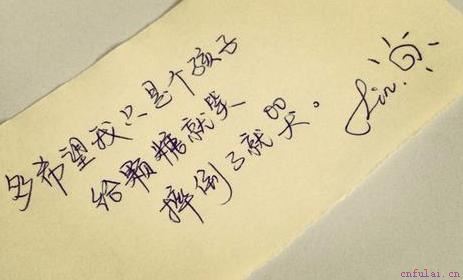 多希望我只是个孩子
给颗糖就笑
摔倒了就哭。
cnfulai.cn